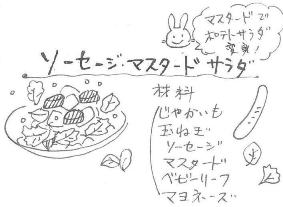 マスタードで
ポテトサラダ
変身！
ソーセージ・マスタードサラダ
材料
じゃがいも
玉ねぎ
ソーセージ
マスタード
ベビーリーフ
マヨネーズ